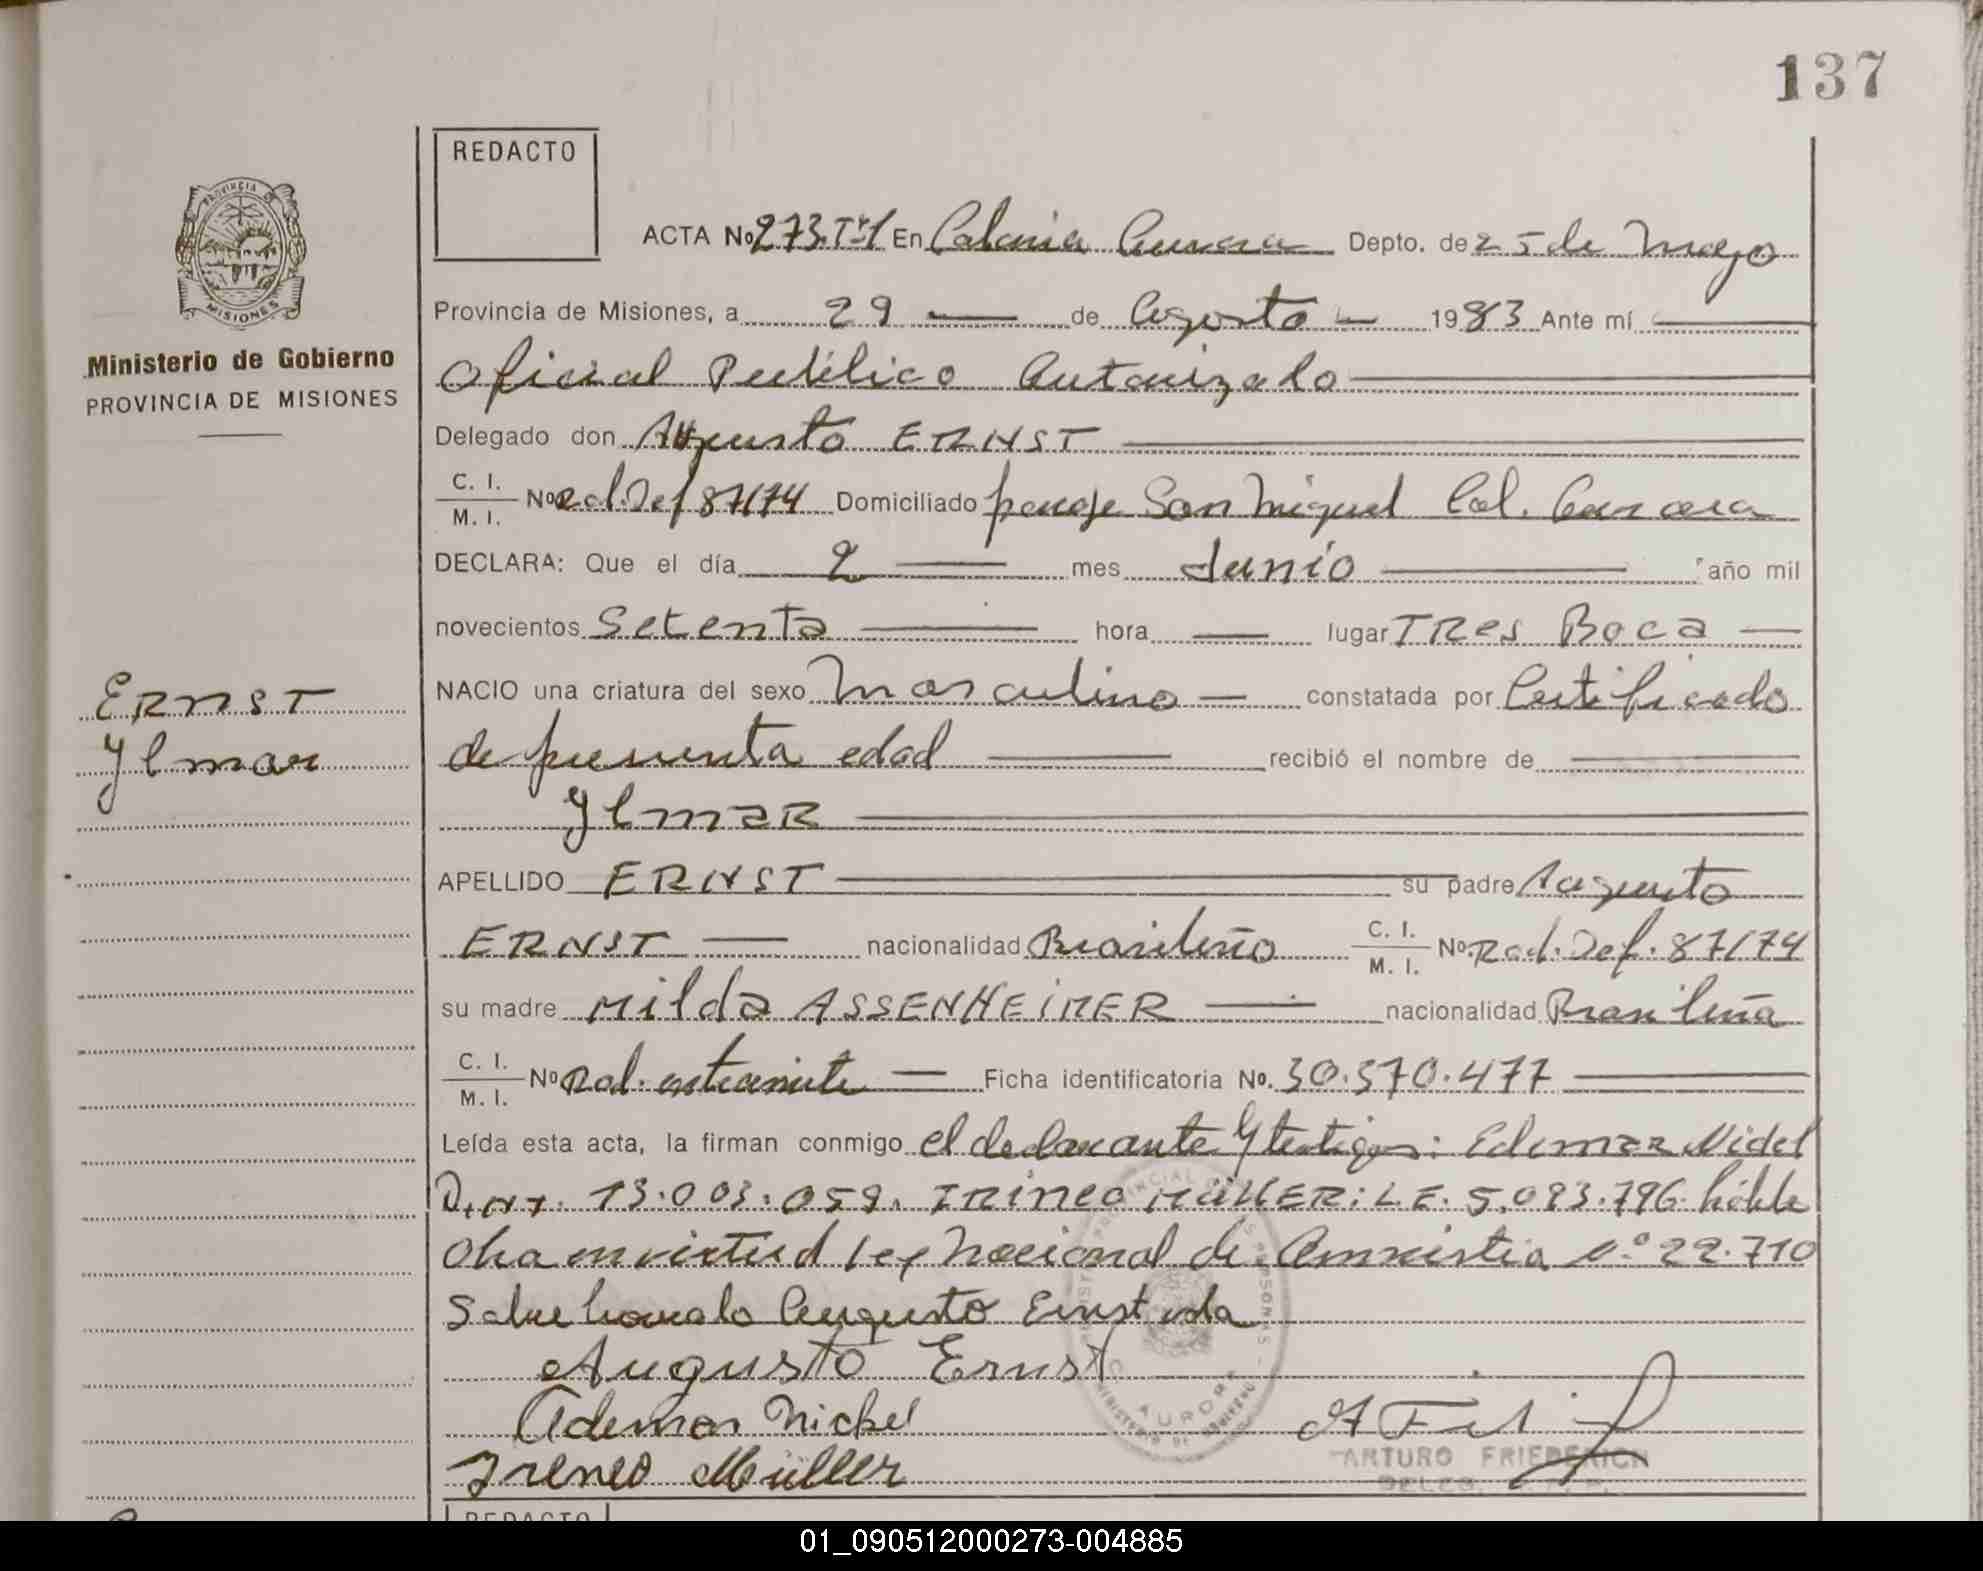 137
REDACTO
ACTA No 273.Tº1 En Colonia Aurora Depto. de 25 de Mayo
PROVINCIA DE
MISIONES
Provincia de Misiones, a 29 de Agosto 1983 Ante mí
Ministerio de Gobierno
PROVINCIA DE MISIONES
Oficial Público Autorizado
Delegado don Augusto ERNST
C. I.
M. I. No Rad. Def 87/74 Domiciliado paraje San Miguel Col. Aurora
DECLARA: Que el día 2 mes Junio año mil
novecientos Setenta hora lugar TRes Boca
ERNST
Ylmar
NACIO una criatura del sexo Masculino constatada por Certificado
de presunta edad recibió el nombre de
YlmaR
APELLIDO ERNST su padre Augusto
ERNST nacionalidad Brasileño C. I.
M. I. No. Rad. Def. 87/74
su madre Milda ASSENHEIMER nacionalidad Brasileña
C. I.
M. I. No Rad. en tramite Ficha identificatoria No. 30.570.477
Leída esta acta, la firman conmigo el declarante y testigos: Edemar Nidel
D.N.I. 13.003.059. IRineo MüllER: L.E. 5.083.796
en virtud ley Nacional de Amnistia Nº 22.710
Sobre borrado Augusto Ernst vale
Augusto Ernst
Ademar Nickel
Ireneo Müller
AURORA
ARTURO FRIEDERICH
REDACTO
01_090512000273-004885